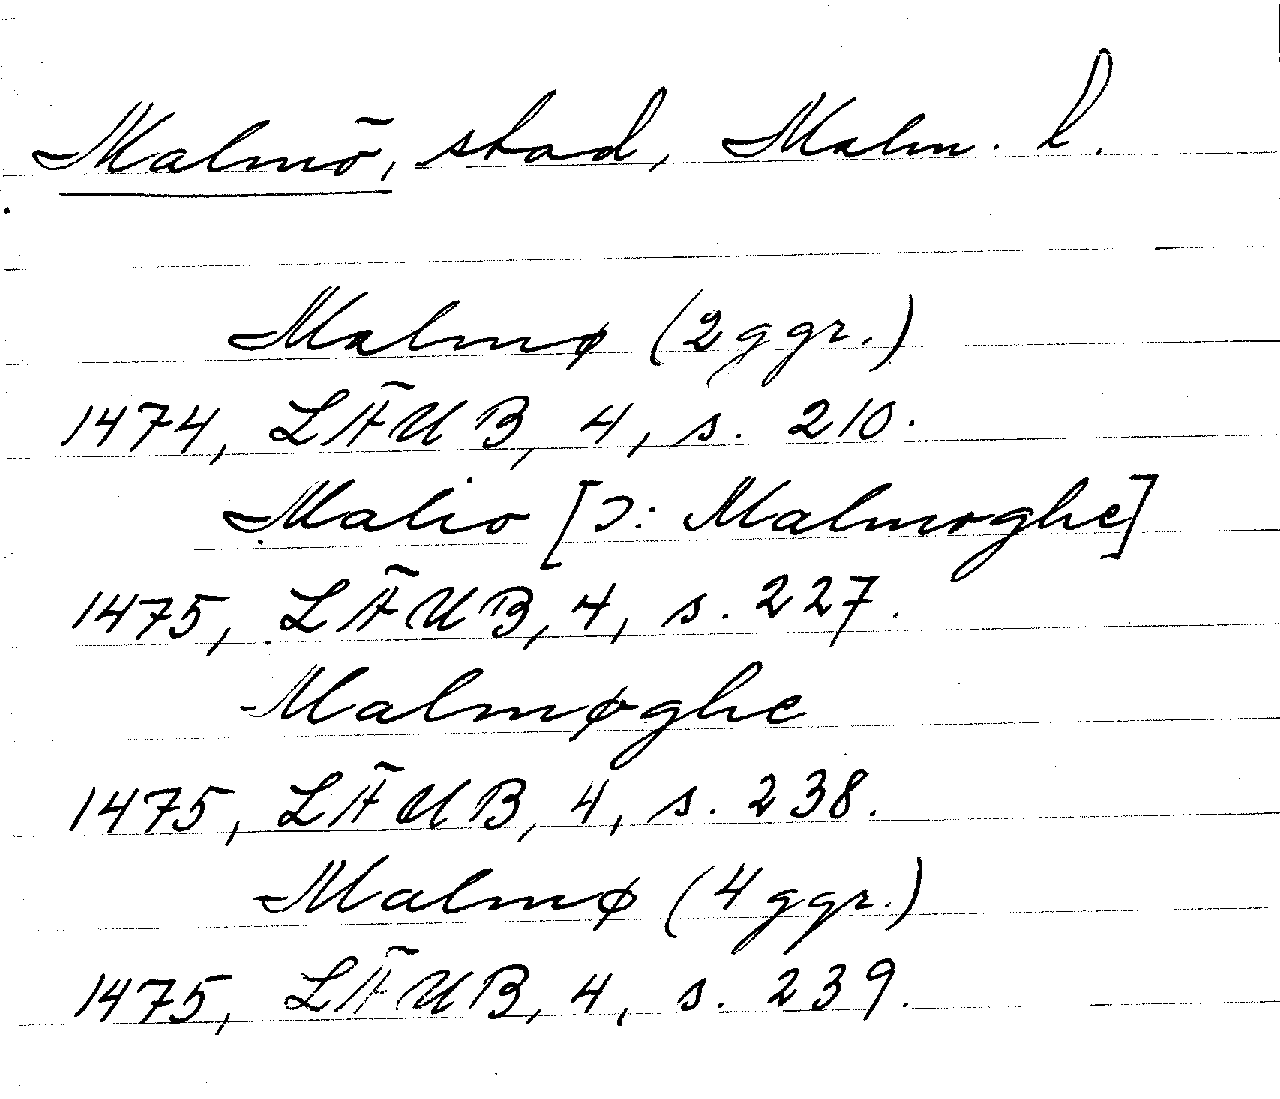 Malmö, stad, Malm. l.
Malmø (2 ggr.)
1474, LÄUB, 4, s. 210.
Malio [ɔ: Malmoghe]
1475, LÄUB, 4, s. 227.
Malmøghe
1475, LÄUB, 4, s. 238.
Malmø (4 ggr.)
1475, LÄUB, 4, s. 239.